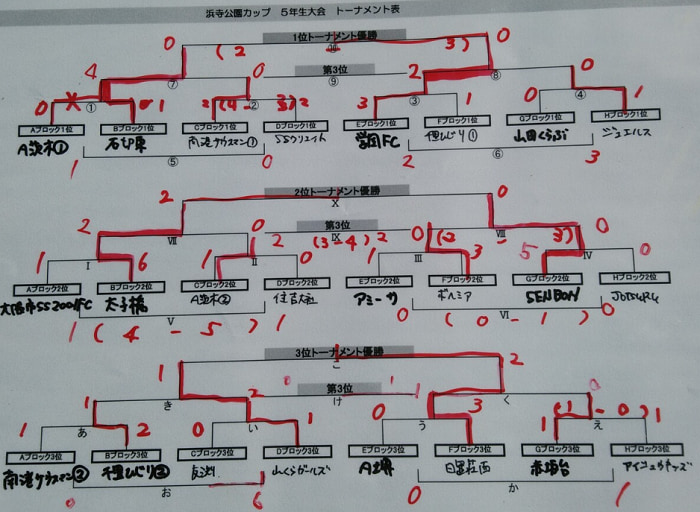 浜寺公園カップ 5年生大会 トーナメント表
1位トーナメント優勝
0 (2 ⑩ 3) 0
4 0 第3位 2 0
⑦ ⑨ ⑧
0 ① 1 2 (4 - ② 3) 2 3 ③ 1 0 ④ 1
Aブロック1位 Bブロック1位 Cブロック1位 Dブロック1位 Eブロック1位 Fブロック1位 Gブロック1位 Hブロック1位
A茨木① 山田くらぶ ジュエルス
1 ⑤ 0 2 ⑥ 3
2位トーナメント優勝
2 X 0
2 0 第3位 0 0
Ⅶ 2 (3-4) 2 Ⅸ (2 - 3) Ⅷ
1 Ⅰ 6 1 Ⅱ 0 1 Ⅲ 3 5 Ⅳ 0
Aブロック2位 Bブロック2位 Cブロック2位 Dブロック2位 Eブロック2位 Fブロック2位 Gブロック2位 Hブロック2位
大阪市SS2001FC 太子橋 A茨木② 住吉大社 アミーサ ボルミア SENBON JOTSURU
1 (4 - Ⅴ 5) 1 0 (0 - Ⅵ 1) 0
3位トーナメント優勝
1 こ 2
1 2 0 第3位 1 1
き け く
1 あ 2 0 い 1 0 う 3 1 (1 - 0) え 1
Aブロック3位 Bブロック3位 Cブロック3位 Dブロック3位 Eブロック3位 Fブロック3位 Gブロック3位 Hブロック3位
南港ケウスマン② 千里ひじり② 長渕 山くらガールズ 日置荘西 赤坂台
0 お 6 0 か 1